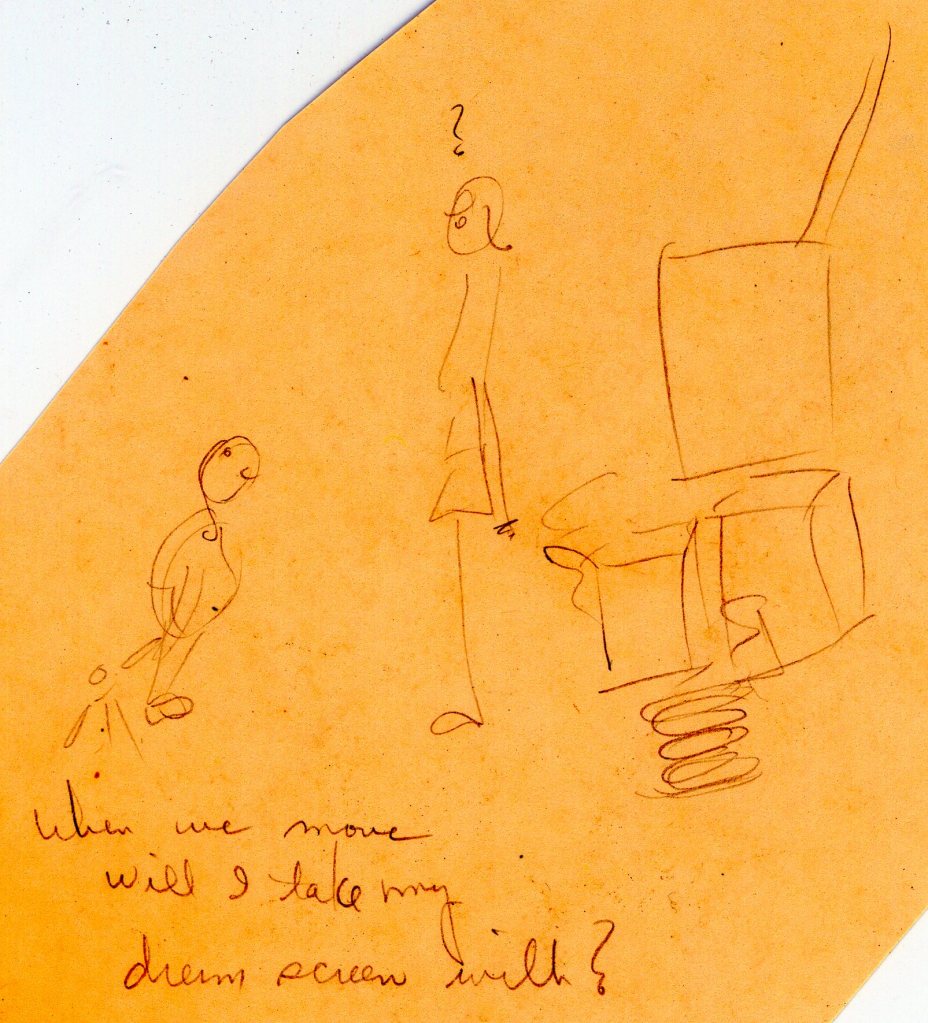 ?
when we move
will I take my
dream screen with?